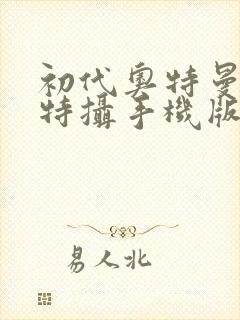 初代奥特曼
特攝手機版
易人北